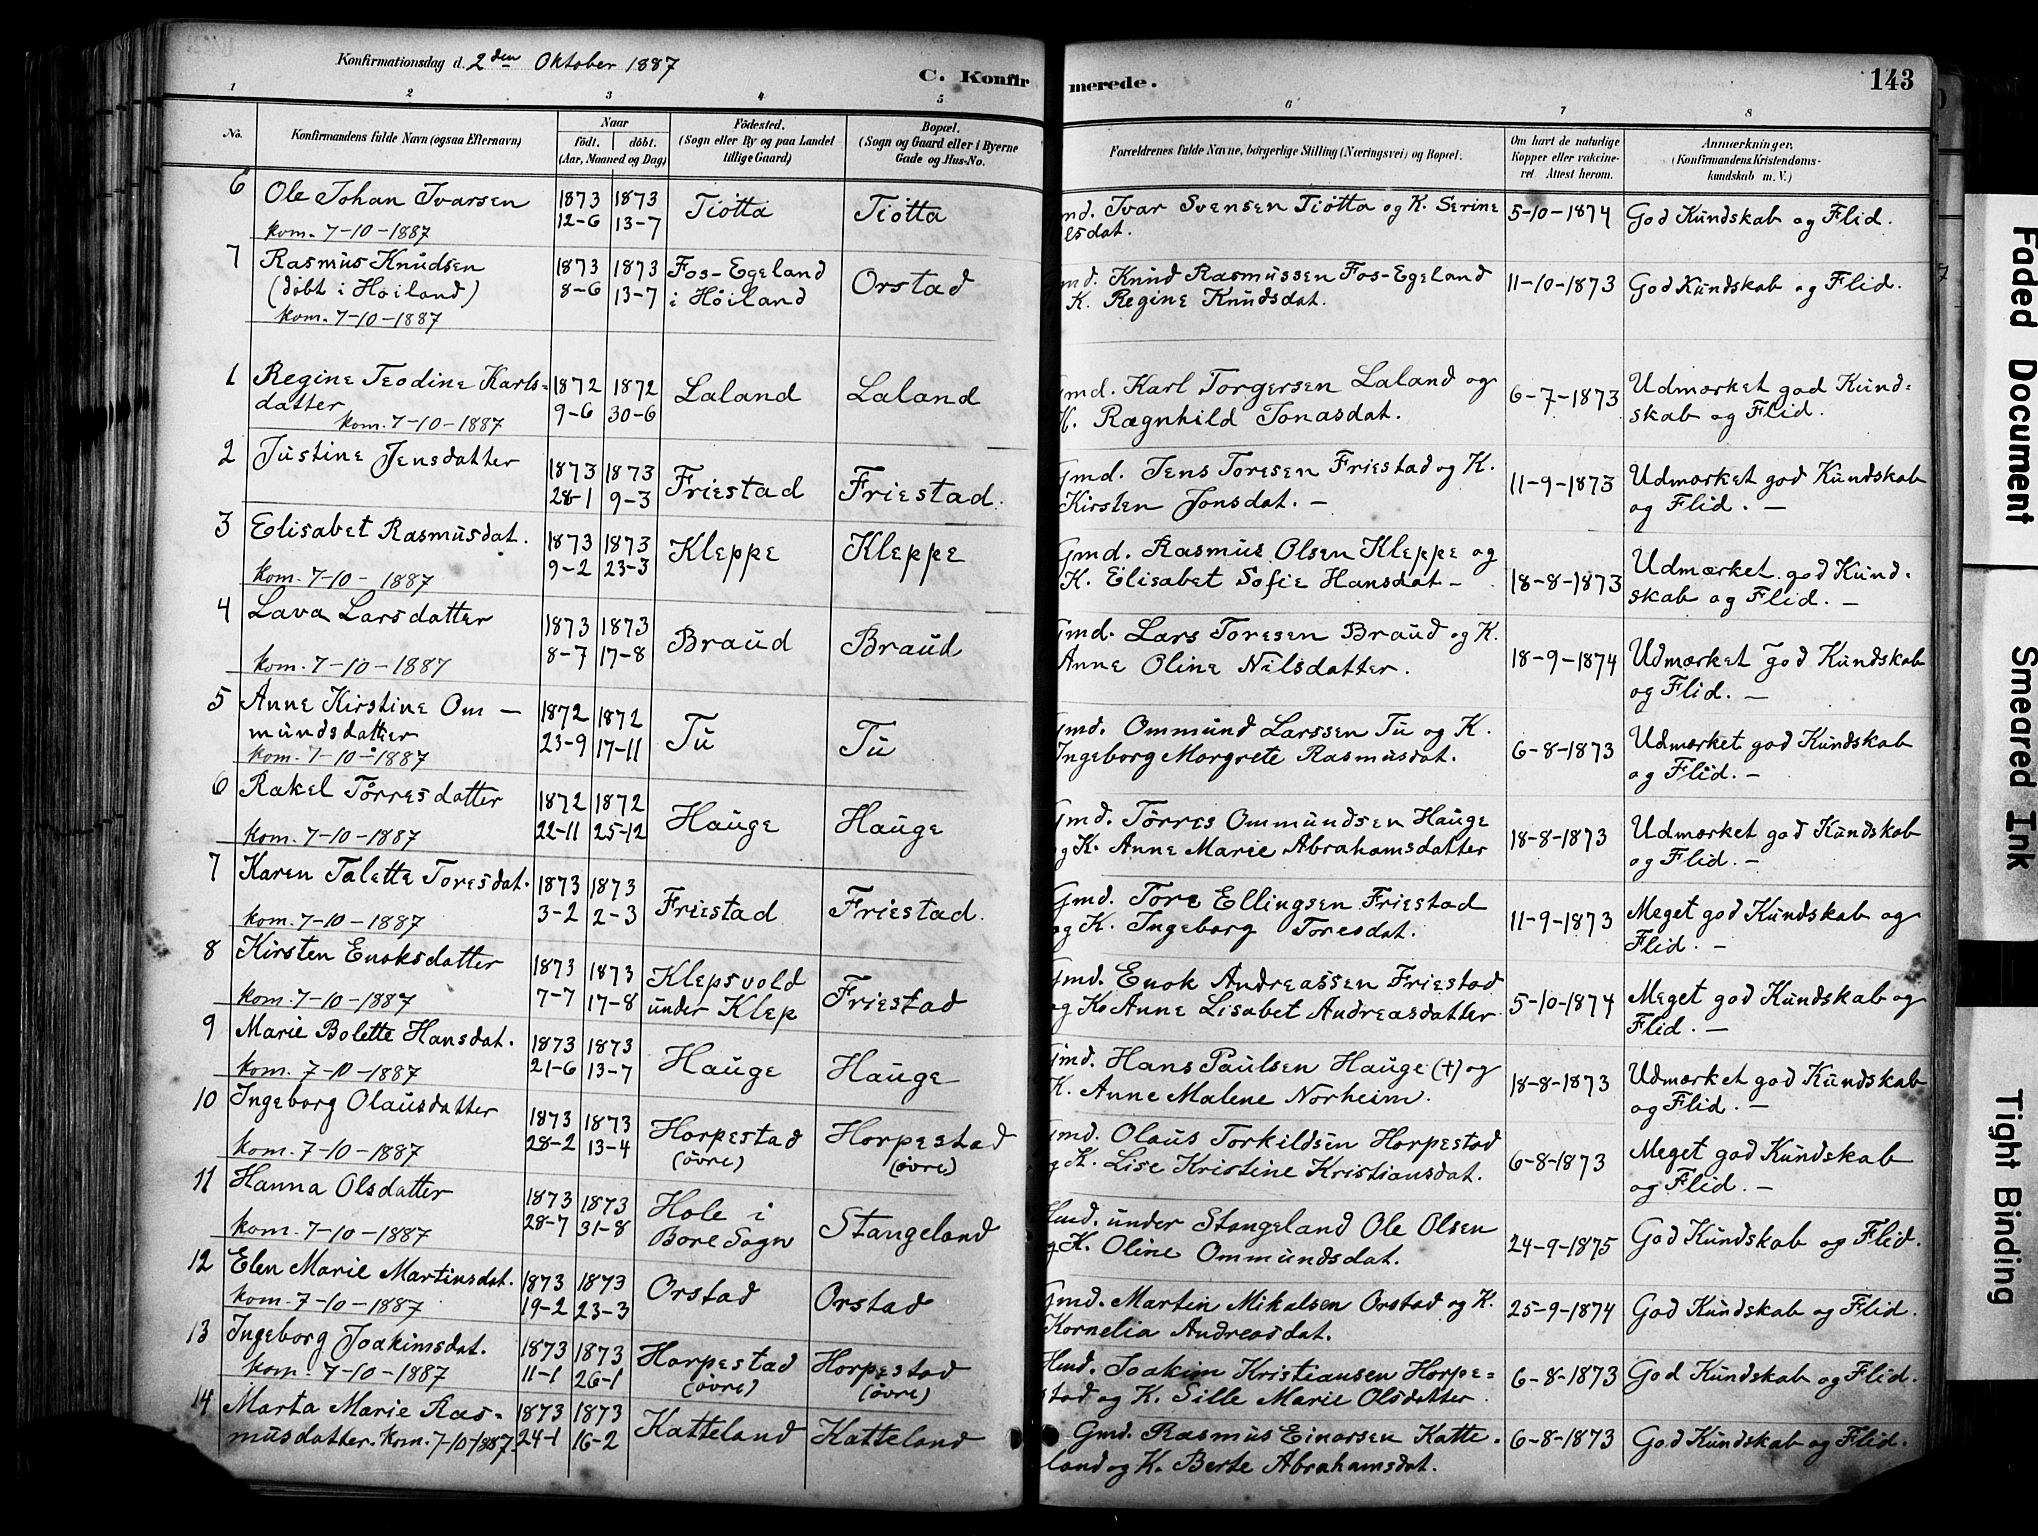 Konfirmationsdag d. 2den Oktober 1887
C. Konfirmerede.
143
1 2 3 4 5 6 7 8
No.
Konfirmandens fulde Navn (ogsaa Efternavn)
Naar
födt. döbt.
(Aar, Maaned og Dag)
Födested.
(Sogn eller By og paa Landet
tillige Gaard)
Bopæl.
(Sogn og Gaard eller i Byerne
Gade og Hus-No.
Forældrenes fulde Navne, borgerlige Stilling (Næringsvei) og Bopæl.
Om havt de naturlige
Kopper eller vaccine-
ret. Attest herom.
Anmærkninger.
(Konfirmandens Kristendoms-
kundskab m. V.)
6 Ole Johan Ivarsen 1873 1873 Tiötta Tiötta md. Ivar Svensen Tiötta og K. Serine 5-10-1874 God Kundskab og Flid.
kom. 7-10-1887 12-6 13-7 lsdat.
7 Rasmus Knudsen 1873 1873 Fos-Egeland Orstad md. Knud Rasmussen Fos-Egeland 11-10-1873 God Kundskab og Flid.
(döbt i Höiland) 8-6 13-7 i Höiland K. Regine Knudsdat.
kom. 7-10-1887
1 Regine Teodine Karls- 1872 1872 Laland Laland Gmd. Karl Torgersen Laland og 6-7-1873 Udmærket god Kund-
datter 9-6 30-6 K. Rægnhild Jonasdat. skab og Flid.
kom. 7-10-1887
2 Justine Jensdatter 1873 1873 Friestad Friestad. Gmd. Jens Toresen Friestad og K. 11-9-1873 Udmærket god Kundskab
28-1 9-3 Kirsten Jonsdat. - og Flid. -
3 Elisabet Rasmusdat. 1873 1873 Kleppe Kleppe Gmd. Rasmus Olsen Kleppe og 18-8-1873 Udmærket god Kund-
kom. 7-10-1887 9-2 23-3 K. Elisabet Sofie Hansdat - skab og Flid. -
4 Lava Larsdatter 1873 1873 Braud Braud Gmd. Lars Toresen Braud og K. 18-9-1874 Udmærket god Kundskab
kom. 7-10-1887 8-7 17-8 Anne Oline Nilsdatter. og Flid. -
5 Anne Kirstine Om- 1872 1872 Tu Tu Gmd. Ommund Larssen Tu og K. 6-8-1873 Udmærket god Kundskab
mundsdatter 23-9 17-11 Ingeborg Margrete Rasmusdat. og Flid. -
kom. 7-10-1887
6 Rakel Törresdatter 1872 1872 Hauge Hauge Gmd. Törres Ommundsen Hauge 18-8-1873 Udmærket god Kundskab
kom. 7-10-1887 22-11 25-12 og K. Anne Marie Abrahamsdatter og Flid. -
7 Karen Talette Toresdat. 1873 1873 Friestad Friestad. Gmd. Tore Ellingsen Friestad 11-9-1873 Meget god Kundskab og
kom. 7-10-1887 3-2 2-3 og K. Ingeborg Toresdat. Flid. -
8 Kirsten Enoksdatter 1873 1873 Klepsvold Friestad Gmd. Enok Andreassen Friestad 5-10-1874 Meget god Kundskab og
kom. 7-10-1887 7-7 17-8 under Klep og K. Anne Lisabet Andreasdatter Flid. -
9 Marie Bolette Hansdat. 1873 1873 Hauge Hauge Gmd. Hans Paulsen Hauge (+) og 18-8-1873 Udmærket god Kundskab
kom. 7-10-1887 21-6 13-7 K. Anne Malene Norheim. og Flid. -
10 Ingeborg Olausdatter 1873 1873 Horpestad Horpestad Gmd. Olaus Torkildsen Horpestad 6-8-1873 Meget god Kundskab
kom. 7-10-1887 28-2 13-4 (övre) (övre) og K. Lise Kristine Kristiansdat. og Flid. -
11 Hanna Olsdatter 1873 1873 Hole i Stangeland Hmd. under Stangeland Ole Olsen 24-9-1875 God Kundskab og Flid.
kom. 7-10-1887 28-7 31-8 Bore Sogn og K. Oline Ommundsdat.
12 Elen Marie Martinsdat. 1873 1873 Orstad Orstad Gmd. Martin Mikalsen Orstad og K. 25-9-1874 God Kundskab og Flid.
kom. 7-10-1887 19-2 23-3 Kornelia Andreasdat.
13 Ingeborg Joakimsdat. 1873 1873 Horpestad Horpestad Hmd. Joakim Kristiansen Horpe- 6-8-1873 God Kundskab og Flid.
kom. 7-10-1887 11-1 26-1 (övre) (övre) stad og K. Sille Marie Olsdatter
14 Marta Marie Ras- 1873 1873 Katteland Katteland Gmd. Rasmus Einarsen Katte- 6-8-1873 God Kundskab og Flid.
musdatter. kom. 7-10-1887 24-1 16-2 land og K. Berte Abrahamsdat.
Faded Document
Smeared Ink
Tight Binding